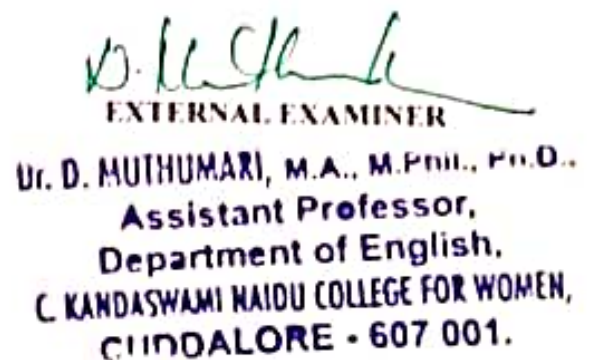 D. Muthumari
EXTERNAL EXAMINER
Dr. D. MUTHUMARI, M.A., M.Phil., Ph.D.,
Assistant Professor,
Department of English,
C. KANDASWAMI NAIDU COLLEGE FOR WOMEN,
CUDDALORE - 607 001.